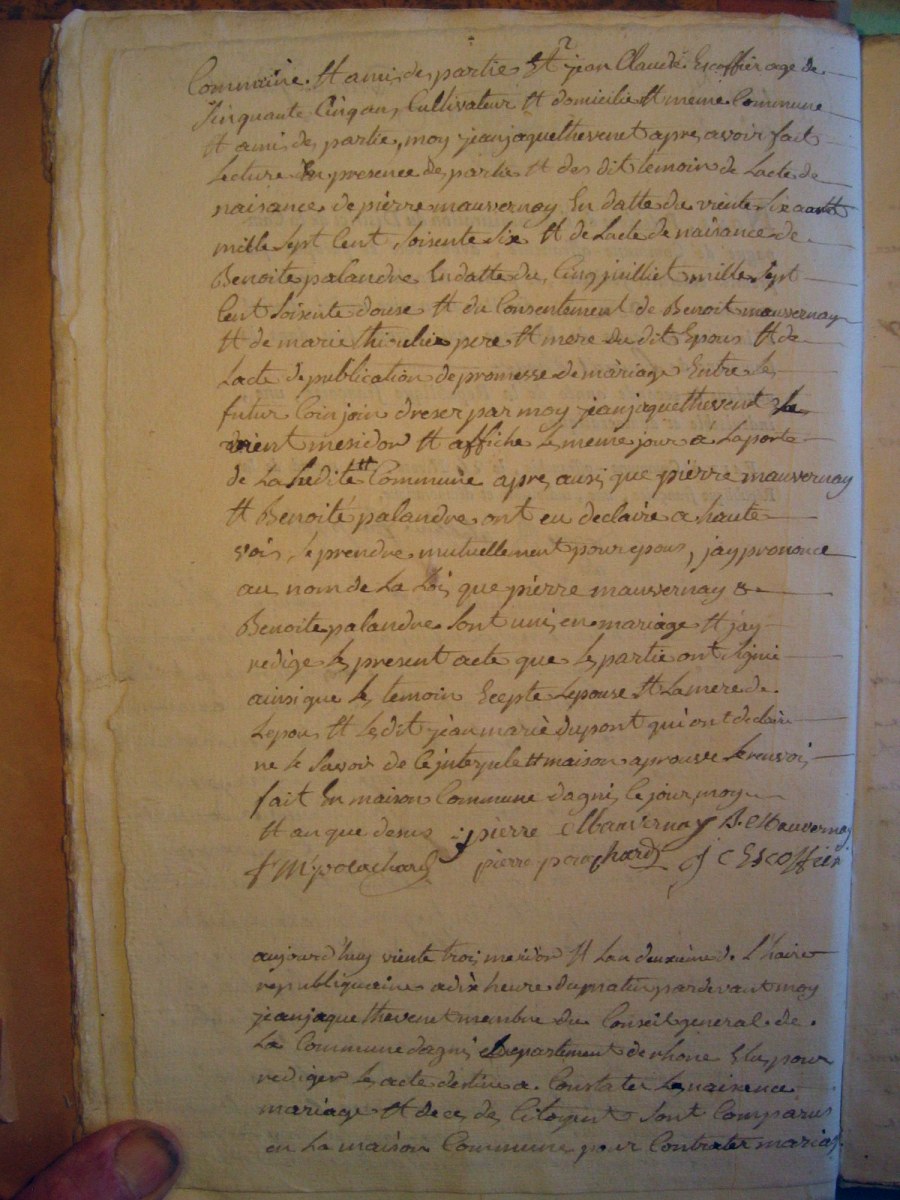 Commune et ami des partie et jean Claude Escoffier age de
Sinquante Cinq an, Cultivateur et domicilie et meme Commune
et ami des partie, moy jeanjaque thevenet apres avoir fait
Lecture En presence des partie et des dit temoin de Lacte de
naisance de pierre mauvernay En datte du viente six
mille sept Cent soisente six et de Lacte de naisance de
Benoite palandre En datte du Cinq juilliet mille sept
Cent soisente douse et du Consentement de Benoit mauvernay
et de marie thiculie pere et mere du dit Epous et de
Lacte de publication de promesse de mariage Entre les
futur Coinjoin dreser par moy jeanjaque thevenet Le
vient mesidor et affiche le meme jour a Laporte
de La susditte Commune apres ausi que pierre mauvernay
et Benoite palandre ont eu declaire a haute
vois se prendre mutuellement pour epous, jay prononce
au nom de La Loi que pierre mauvernay &
Benoite palandre sont unis en mariage et jay
redige le present acte que les partie ont signie
ainsi que les temoin Ecepte Lepouse et Lamere de
Lepous et Ledit jean marie dupont qui ont declaire
ne le savoir de et maison aprouve le renvoi
fait En maison Commune dagni le jour, moy
et an que desus pierre Mauvernay B. Mauvernay
pierre J C Escoffier
aujourd'huy viente trois mesidor et Lan deuxieme de L'haire
republiquaine a dix heure du matin pardevant moy
jeanjaque thevenet membre du Conseit general de
La Commune dagni departement de rhone Elu pour
rediger les acte destine a Constater les naisance
mariage et deces des Citoyent sont Comparus
en La maison Commune pour Contrater mariag